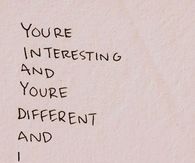 YOURE
INTERESTING
AND
YOURE
DIFFERENT
AND
I